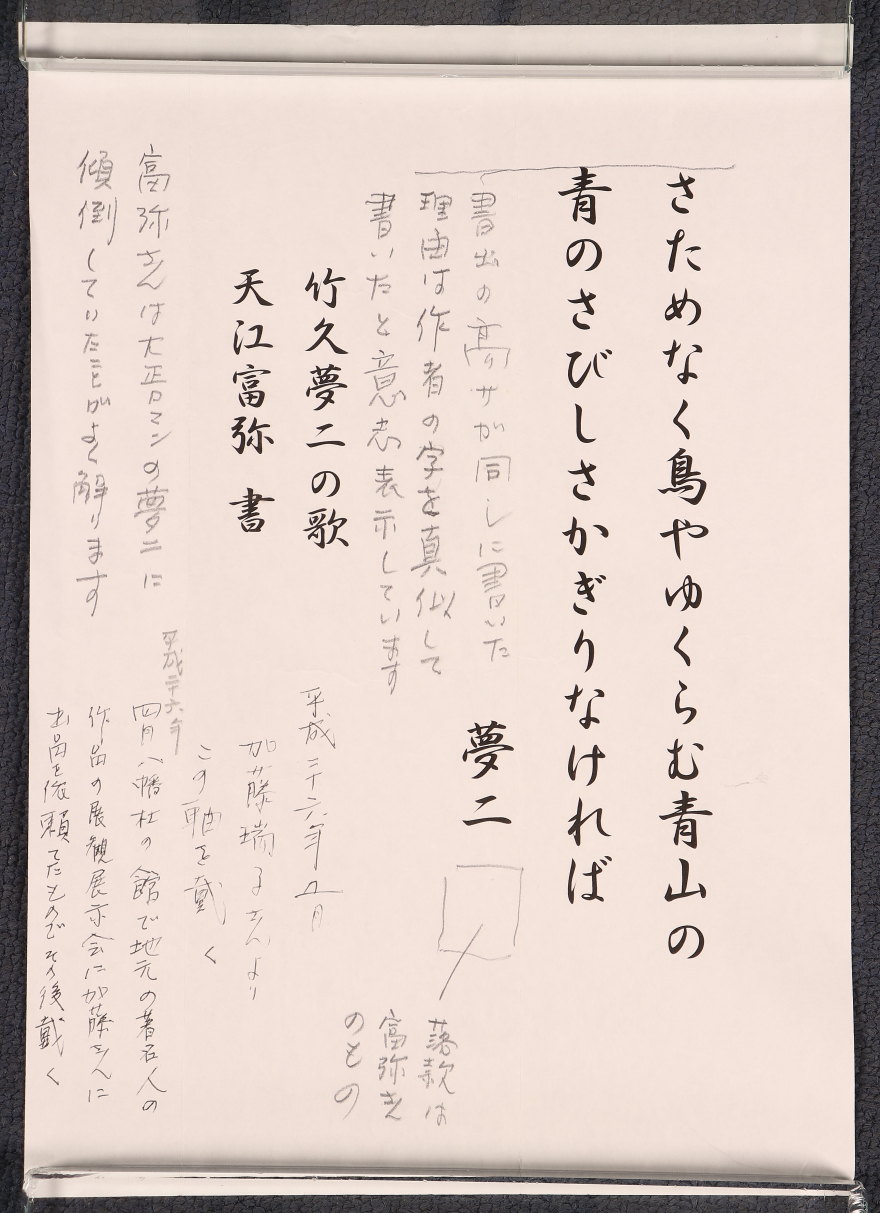 さためなく鳥やゆくらむ青山の
青のさびしさかぎりなければ
夢二
書出の高サが同しに書いた
理由は作者の字を真似して
書いたと意志表示しています
竹久夢二の歌
天江富弥 書
富弥さんは大正ロマンの夢二に
傾倒していたことがよく解ります
落款は
富弥さん
のもの
平成二十六年五月
加藤瑞子さんより
この軸を戴く
平成二十六年
四月八幡杜の館で地元の著名人の
作品の展観展示会に加藤さんに
出品を依頼てたものでその後戴く